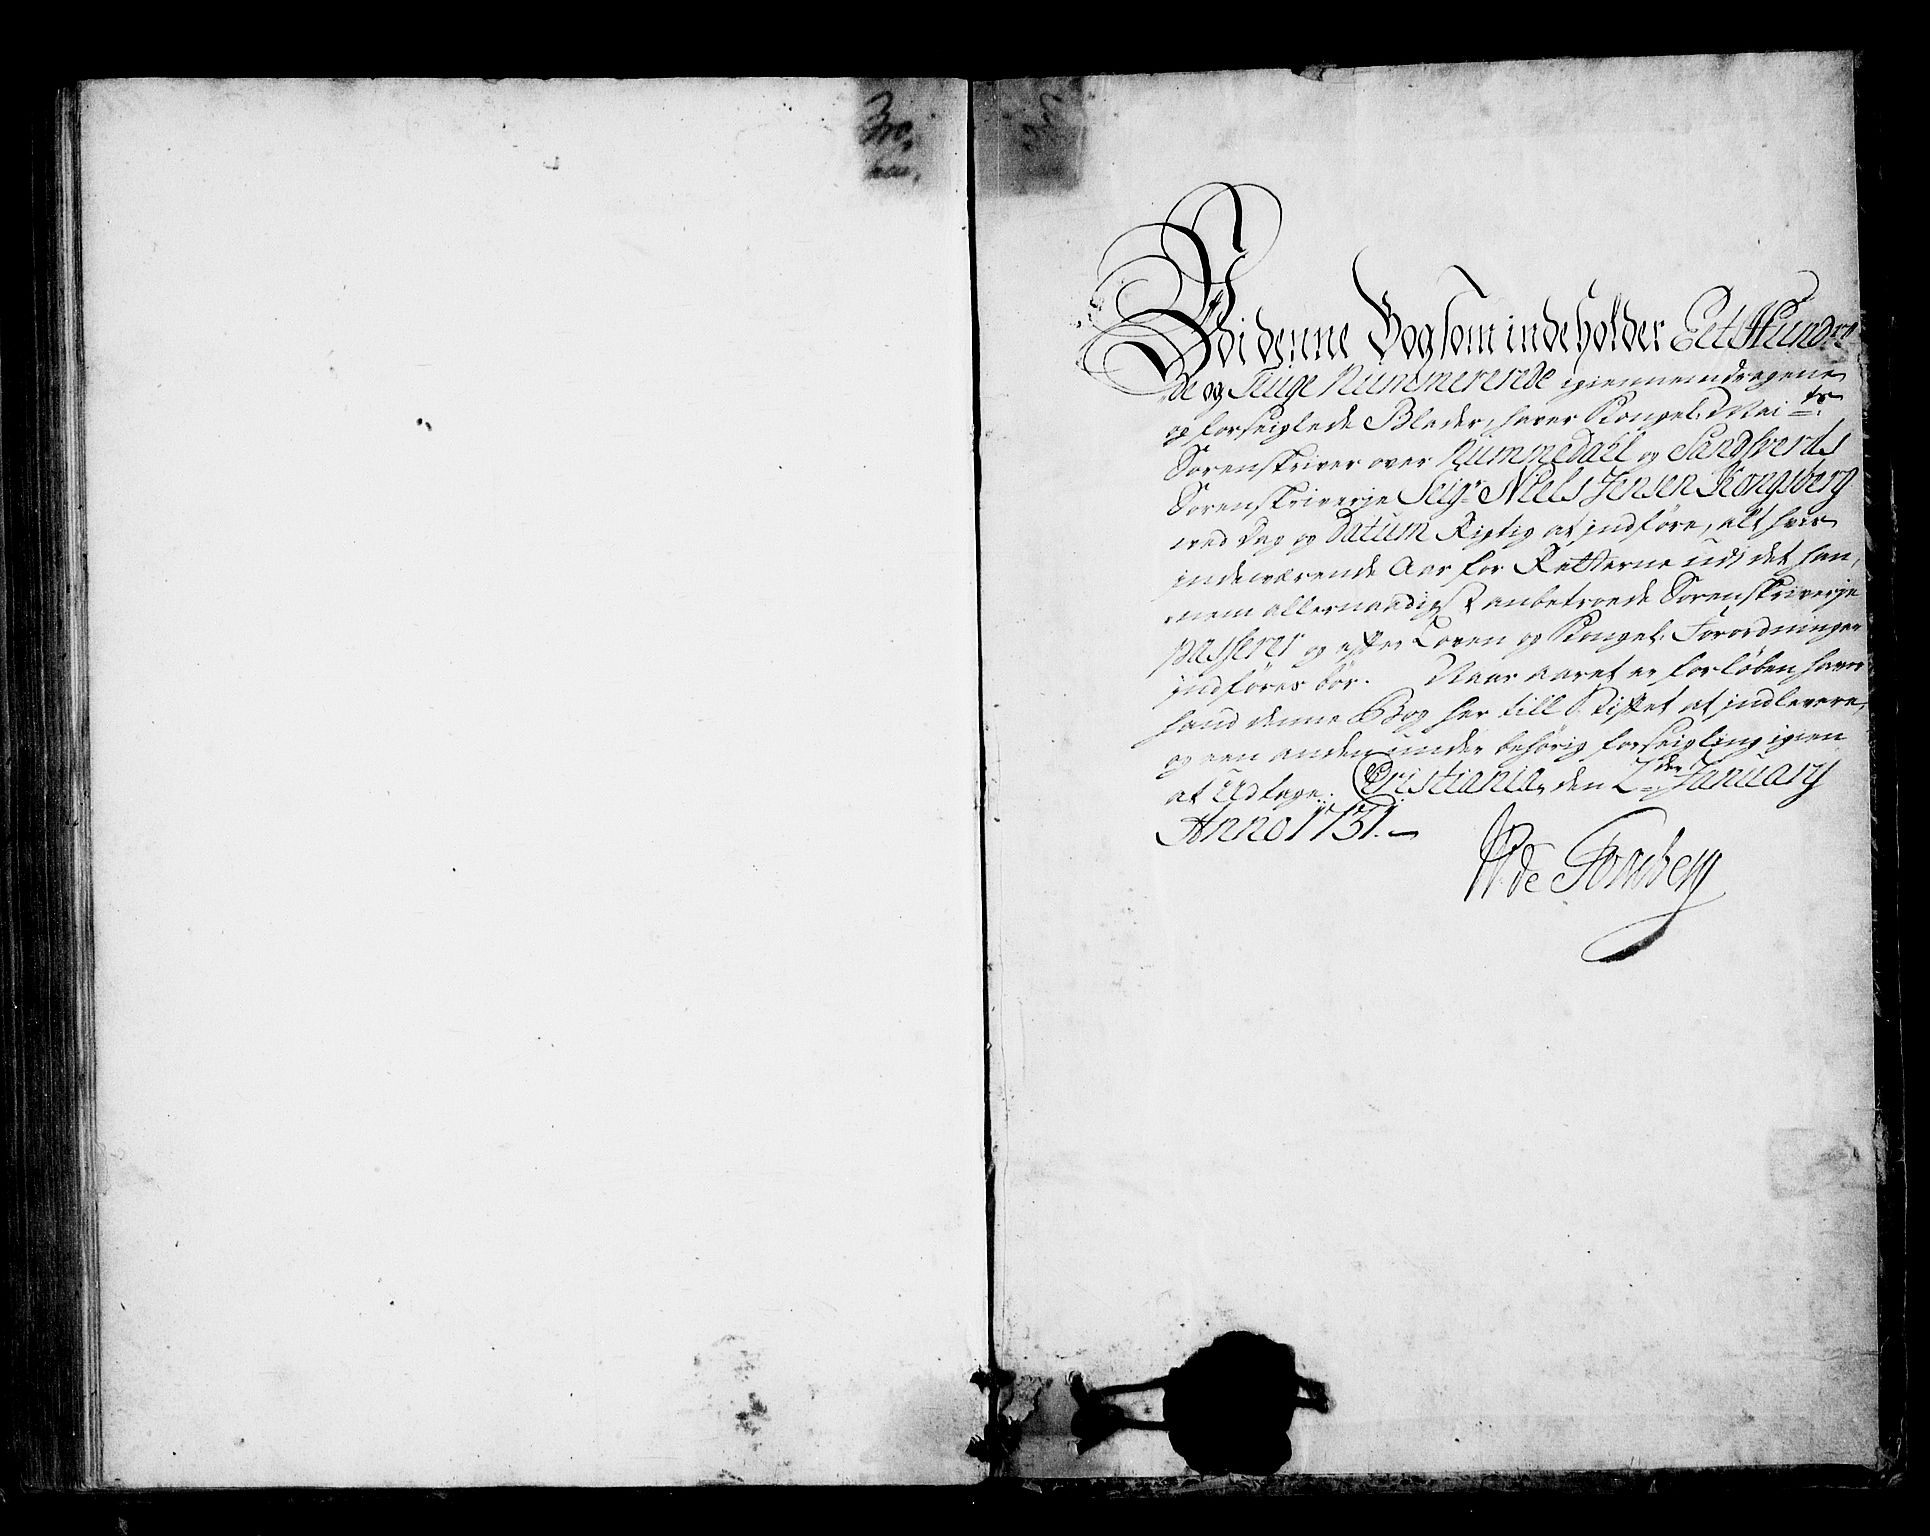 Udi denne Bog som indeholder Eet Hundre
de og Tiuge Nummererede igiennemdragene
og forseiglede Blader, haver Kongel: Mai ts
Sorenskriver over Nummedahl og Sandsverds
Sorenskriverje Seigr Niels Jensen Kongsberg
ved Dag og Datum Rigtig at indføre, alt hvis
indeværende Aar for Retterne udi det han,
nem allernaadigst anbetroede Sorenskriverje
passerer og efter Loven og Kongel: Forordninger
indføres bør. Naar aaret er forløben haver
hand denne Bog her till Stiftet at indlevere,
og een anden under behørig forseigling igien
at Udtage. Cristiania, den 2den January
Anno 1731.
P: de Tonsberg